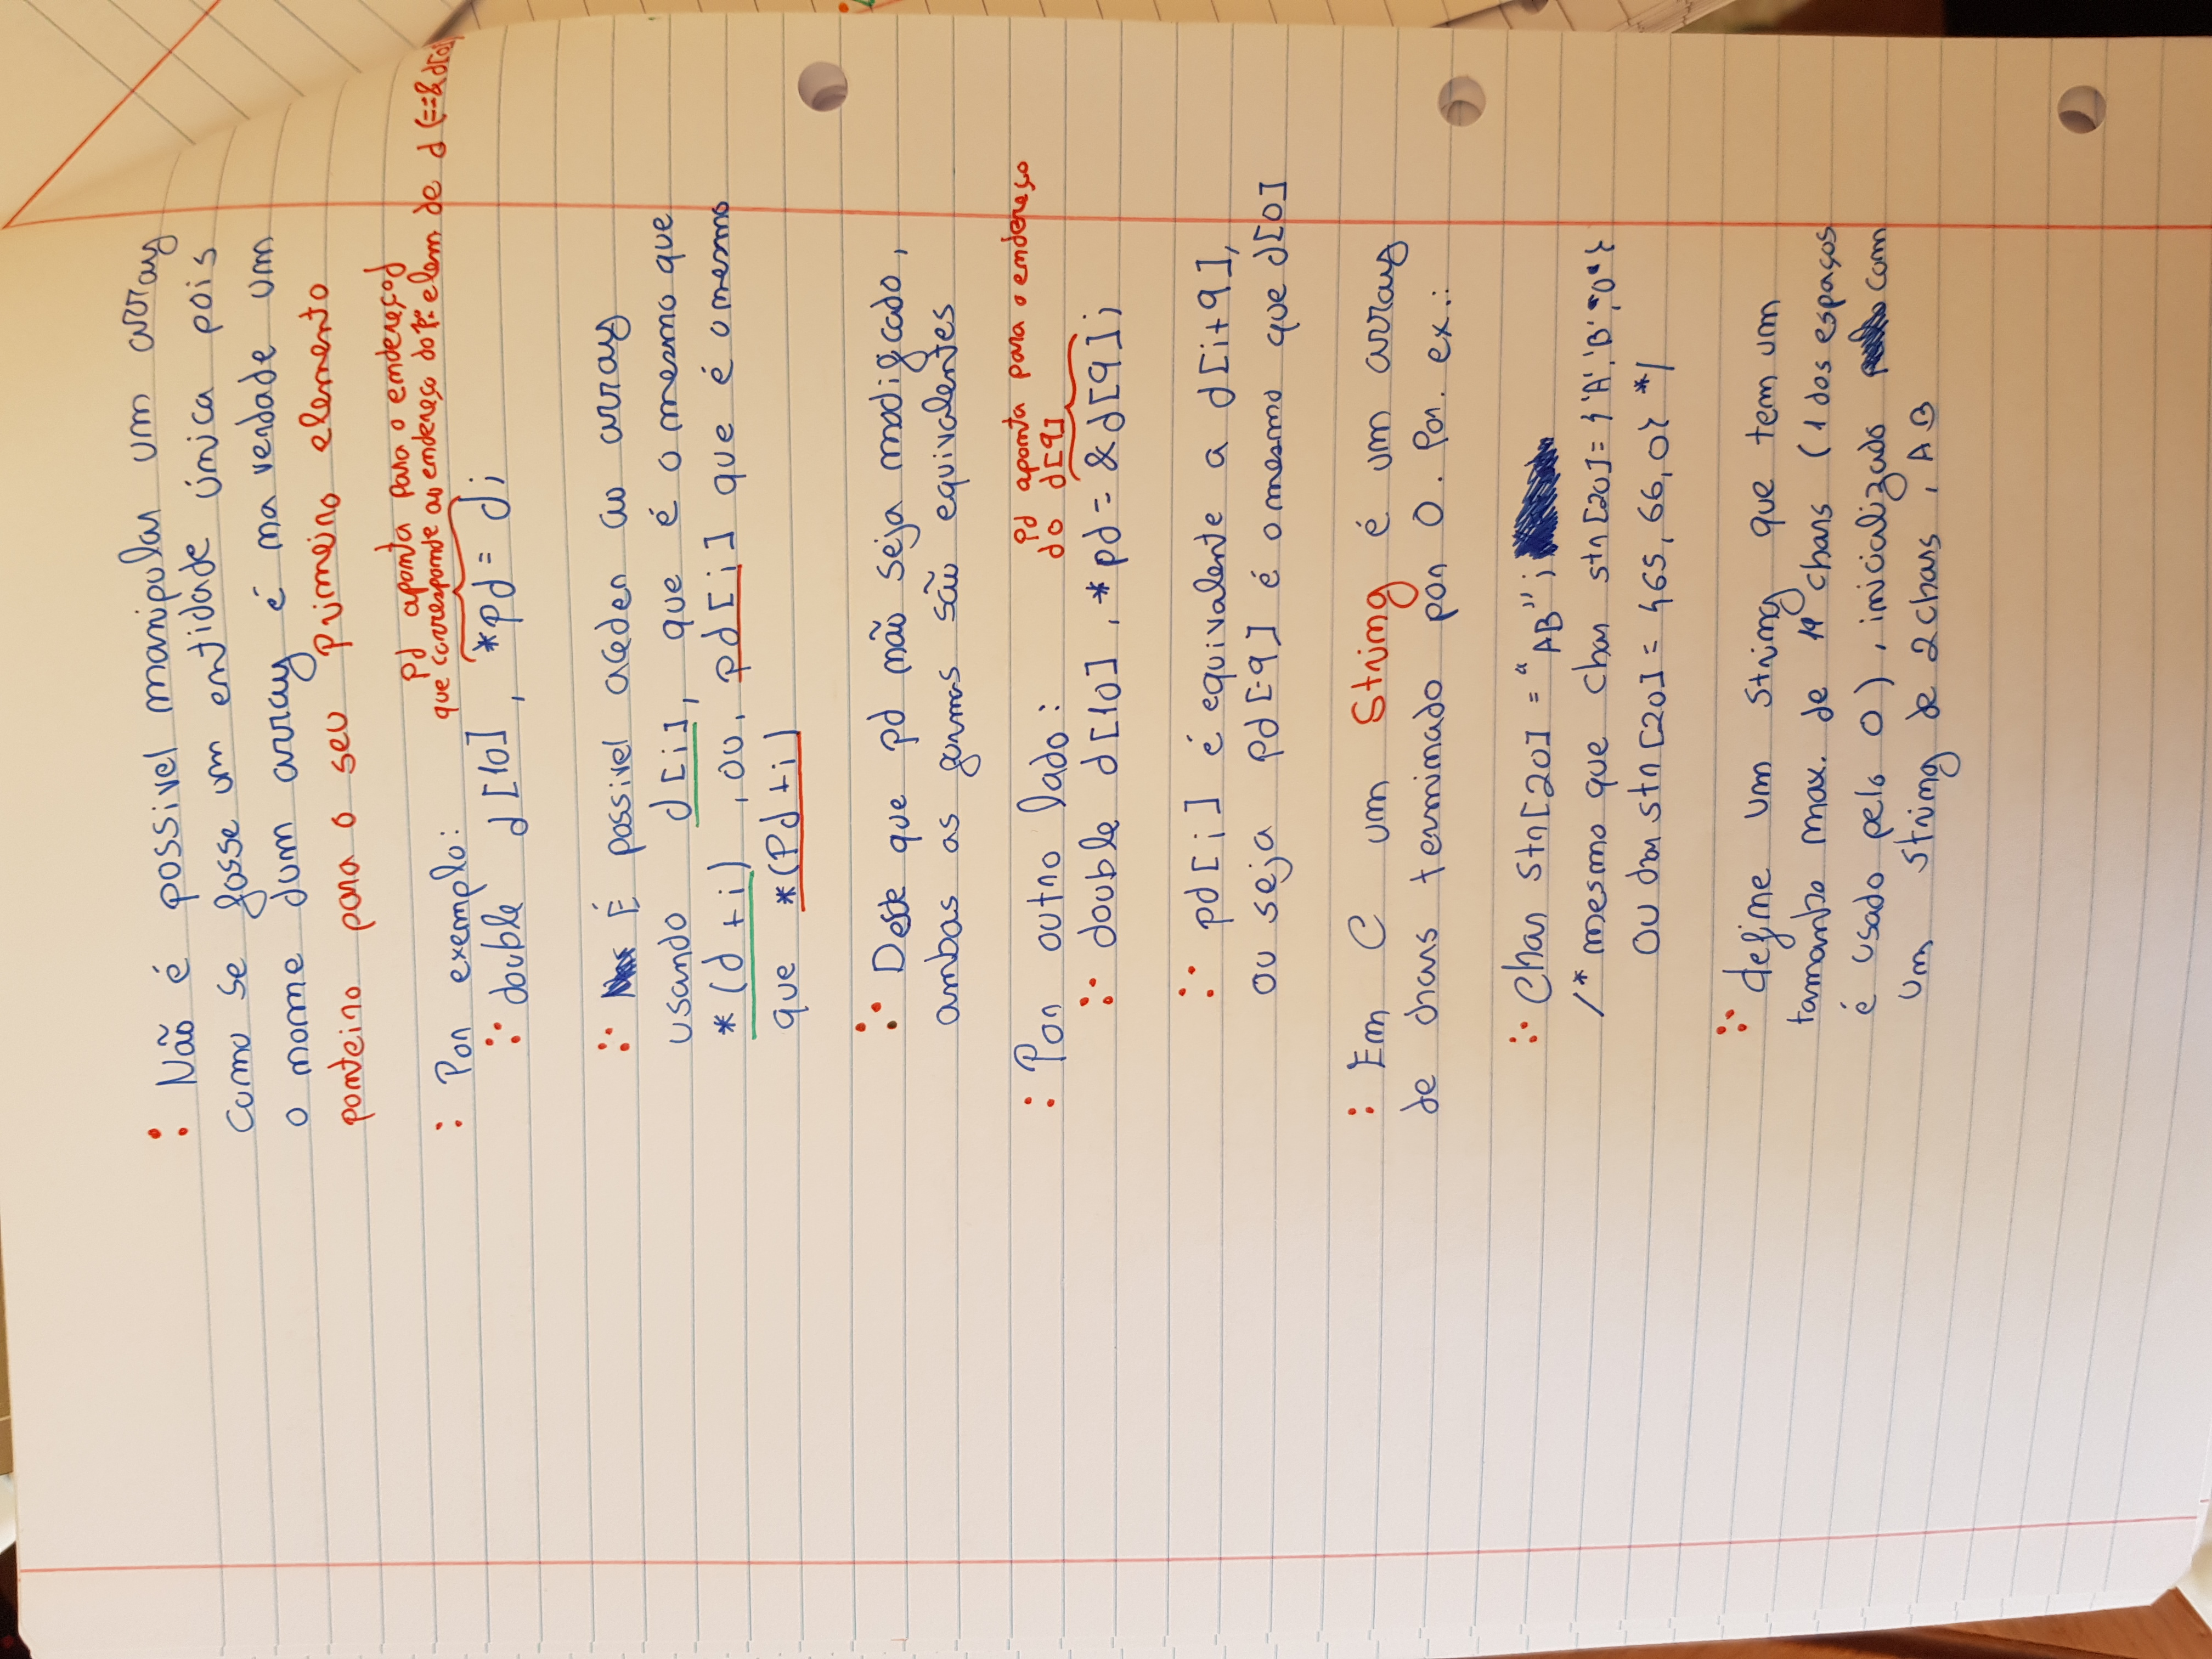 : Não é possivel manipular um array
como se fosse um entidade única pois
o nome dum array é na verdade um
ponteiro para o seu primeiro elemento
pd aponta para o endereço d
que corresponde ao endereço do 1º elem de d (==&d[0])
: Por exemplo:
double d[10], *pd = d;
É possivel aceder ao array
usando d[i], que é o mesmo que
*(d+i), ou, pd[i] que é o mesmo
que *(Pd+i)
Deste que pd não seja modificado,
ambas as formas são equivalentes
: Por outro lado:
pd aponta para o endereço
do d[9]
double d[10], *pd = &d[9];
pd[i] é equivalente a d[i+9],
ou seja pd[-9] é o mesmo que d[0]
: Em C um String é um array
de chars terminado por 0. Por. ex.:
Char str[20] = "AB";
/* mesmo que char str[20]= {'A','B','0'}
ou char str[20] = {65, 66, 0} */
define um string que tem um
tamanho max. de 19 chars (1 dos espaços
é usado pelo 0), inicializado com
um string de 2 chars, AB